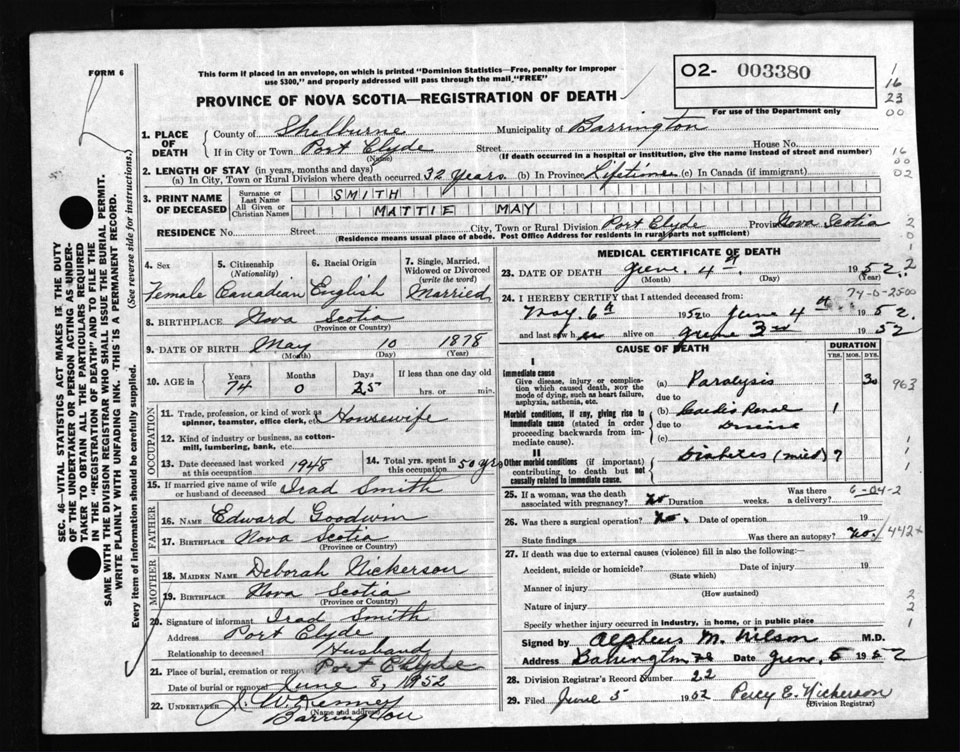 FORM 6
This form if placed in an envelope, on which is printed "Dominion Statistics—Free, penalty for improper
use $300," and properly addressed will pass through the mail "FREE"
02- 003380
For use of the Department only
PROVINCE OF NOVA SCOTIA—REGISTRATION OF DEATH
1
16
23
00
1. PLACE OF DEATH
County of Shelburne Municipality of Barrington
If in City or Town Port Clyde Street House No.
(Name) (If death occurred in a hospital or institution, give the name instead of street and number)
16
00
02
2. LENGTH OF STAY (in years, months and days)
(a) In City, Town or Rural Division where death occurred 32 years (b) In Province Lifetime (c) In Canada (if immigrant)
3. PRINT NAME OF DECEASED
Surname or Last Name SMITH
All Given or Christian Names MATTIE MAY
RESIDENCE No. Street City, Town or Rural Division Port Clyde Province Nova Scotia
(Residence means usual place of abode. Post Office Address for residents in rural parts not sufficient)
4. Sex Female
5. Citizenship (Nationality) Canadian
6. Racial Origin English
7. Single, Married, Widowed or Divorced (write the word) Married
8. BIRTHPLACE Nova Scotia
(Province or Country)
9. DATE OF BIRTH May 10 1878
(Month) (Day) (Year)
10. AGE in Years 74 Months 0 Days 25 If less than one day old hrs. or min.
OCCUPATION
11. Trade, profession, or kind of work as spinner, teamster, office clerk, etc. Housewife
12. Kind of industry or business, as cotton-mill, lumbering, bank, etc.
13. Date deceased last worked at this occupation 1948
14. Total yrs. spent in this occupation 50 yrs
15. If married give name of wife or husband of deceased Irad Smith
FATHER
16. NAME Edward Goodwin
17. BIRTHPLACE Nova Scotia
(Province or Country)
MOTHER
18. MAIDEN NAME Deborah Nickerson
19. BIRTHPLACE Nova Scotia
(Province or Country)
20. Signature of informant Irad Smith
Address Port Clyde
Relationship to deceased Husband
21. Place of burial, cremation or removal Port Clyde
Date of burial or removal June 8, 1952
22. UNDERTAKER J. W. Kenney
(Name and address)
Barrington
MEDICAL CERTIFICATE OF DEATH
23. DATE OF DEATH June 4th 1952
(Month) (Day) (Year)
74-0-2500
24. I HEREBY CERTIFY that I attended deceased from
May 6th 1952 to June 4th 1952
and last saw her alive on June 3rd 1952
CAUSE OF DEATH
DURATION
YRS. MOS. DYS.
I
Immediate cause
Give disease, injury or complication which caused death, not the mode of dying, such as heart failure, asphyxia, asthenia, etc.
(a) Paralysis 30
due to
963
Morbid conditions, if any, giving rise to immediate cause (stated in order proceeding backwards from immediate cause).
(b) Cardio Renal 1
due to Disease
(c)
II
Other morbid conditions (if important) contributing to death but not causally related to immediate cause.
Diabetes (mild) ?
25. If a woman, was the death associated with pregnancy? No Duration weeks. Was there a delivery?
6-04-2
26. Was there a surgical operation? No. Date of operation 19
State findings Was there an autopsy? No.
442+
27. If death was due to external causes (violence) fill in also the following:—
Accident, suicide or homicide? Date of injury 19
(State which)
Manner of injury
(How sustained)
Nature of injury
Specify whether injury occurred in industry, in home, or in public place
2
2
1
Signed by Alpheus M. Wilson M.D.
Address Barrington Date June 5 1952
28. Division Registrar's Record Number 22
29. Filed June 5 1952 Percy E. Nickerson
(Division Registrar)
SEC. 46—VITAL STATISTICS ACT MAKES IT THE DUTY
OF THE UNDERTAKER OR PERSON ACTING AS UNDERTAKER TO OBTAIN ALL THE PARTICULARS REQUIRED
IN THE "REGISTRATION OF DEATH" AND TO FILE THE
SAME WITH THE DIVISION REGISTRAR WHO SHALL ISSUE THE BURIAL PERMIT.
WRITE PLAINLY WITH UNFADING INK. THIS IS A PERMANENT RECORD.
Every item of information should be carefully supplied. (See reverse side for instructions.)